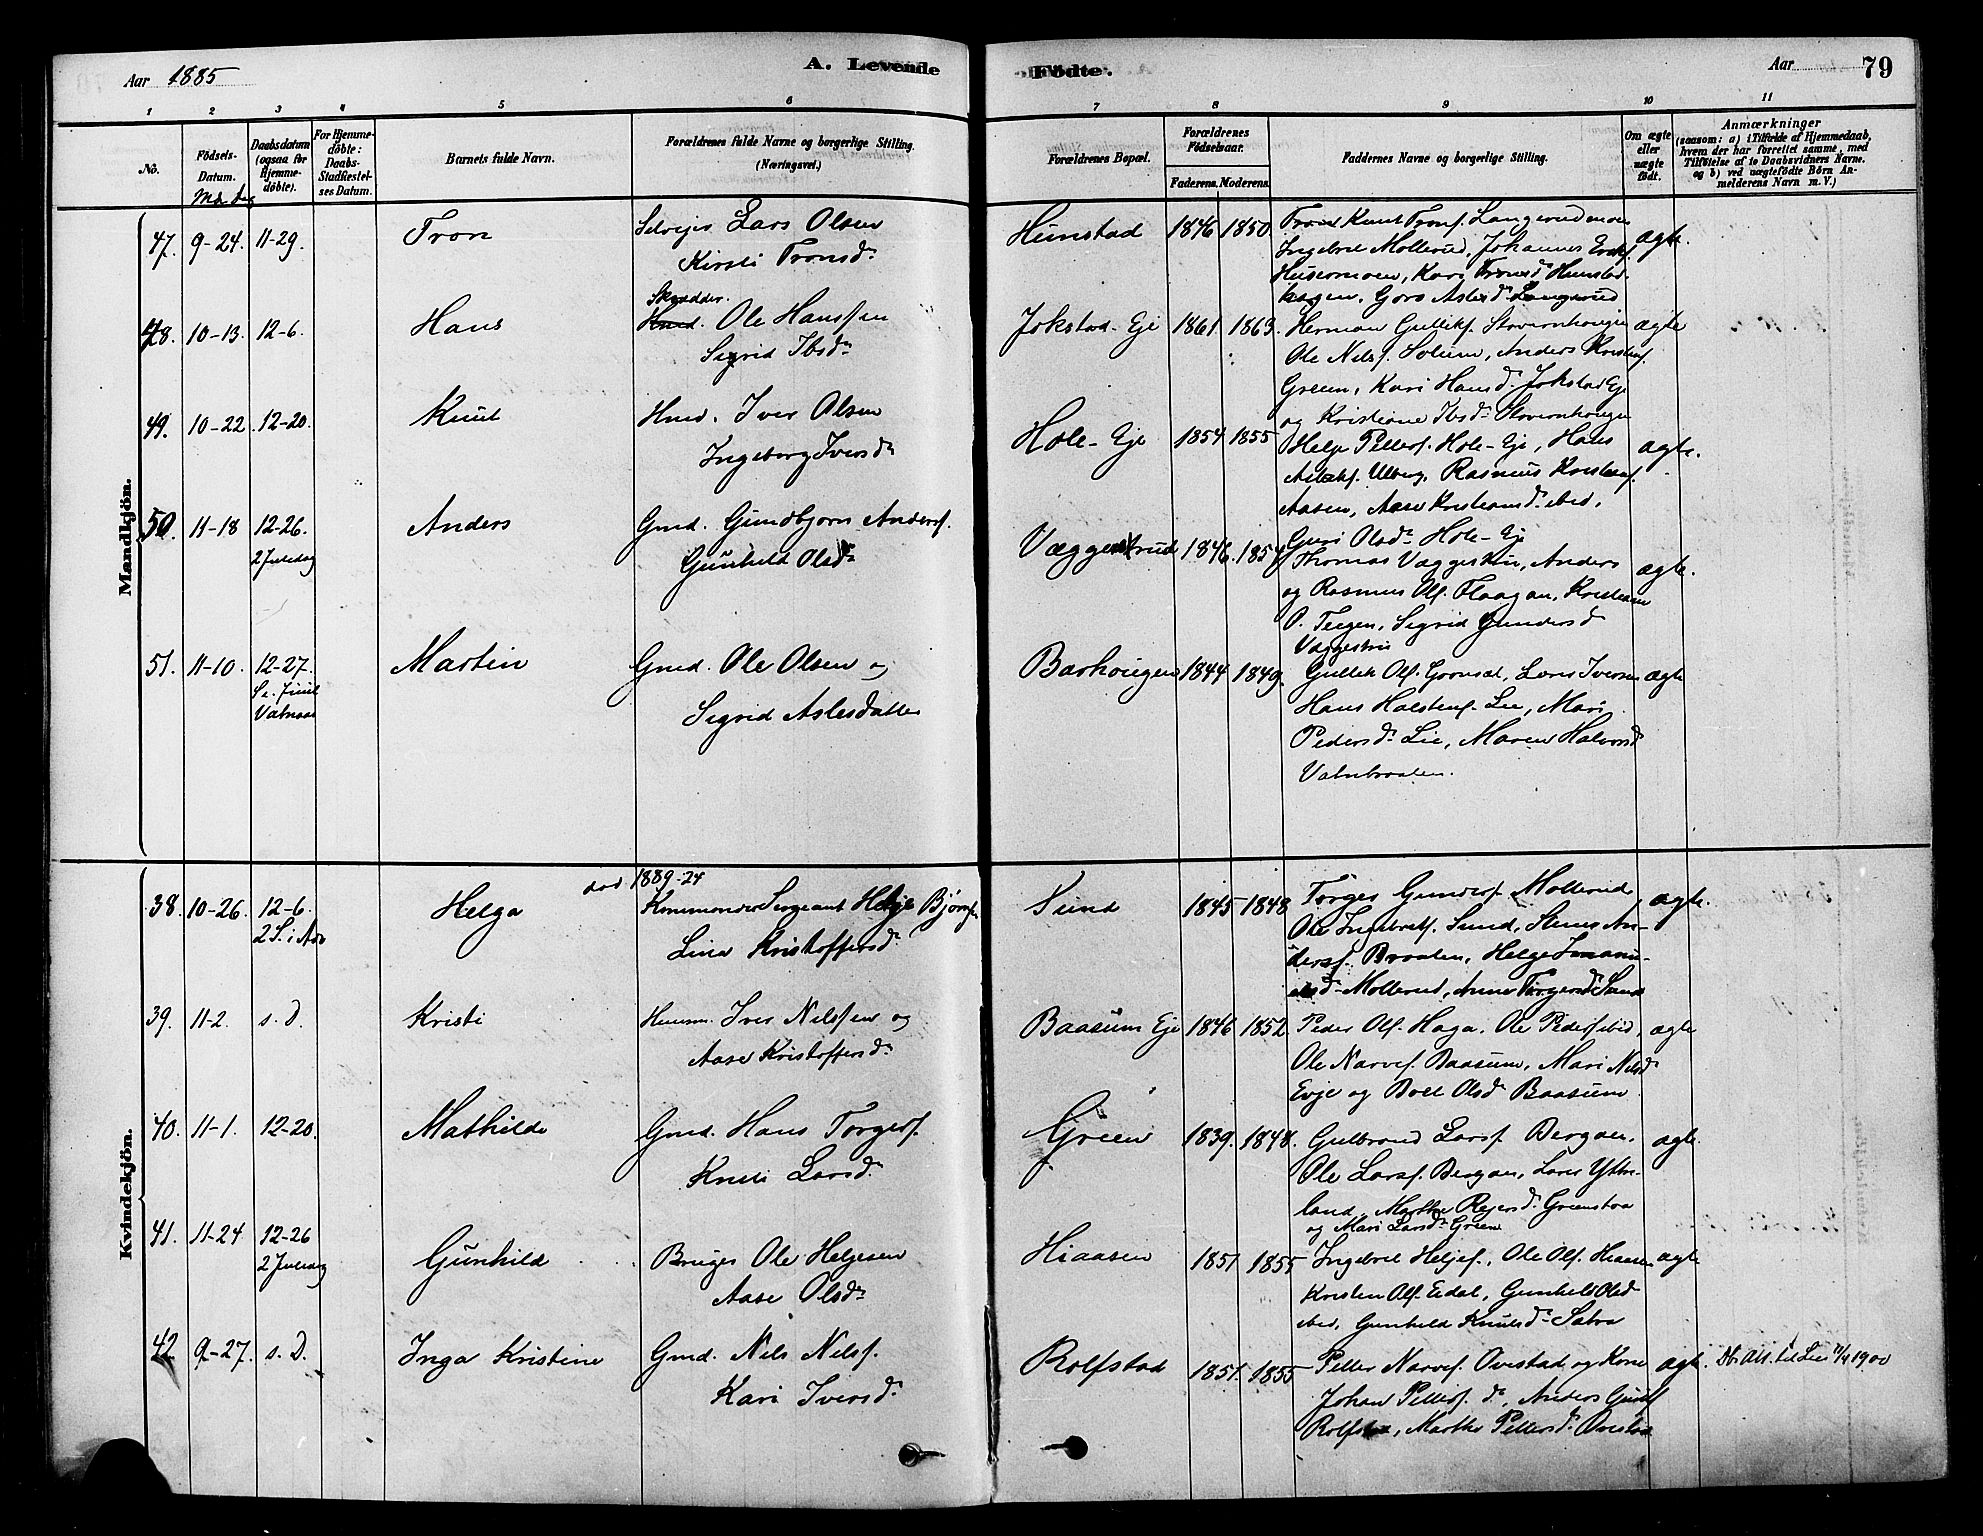 Aar 1885
A. Levende
Fødte.
Aar
79
1 2 3 4 5 6 7 8 9 10 11
No.
Födsels-
Datum.
Md. Dag
Daabsdatum
(ogsaa for
Hjemme-
döbte).
For Hjemme-
döbte:
Daabs-
Stadfæstel-
ses Datum.
Barnets fulde Navn.
Forældrenes fulde Navne og borgerlige Stilling.
(Næringsvei.)
Forældrenes Bopæl.
Forældrenes
Födselsaar.
Faderens. Moderens.
Faddernes Navne og borgerlige Stilling.
Om ægte
eller
uægte
födt.
Anmærkninger
(saasom: a) i Tilfælde af Hjemmedaab,
hvem der har forrettet samme, med
Tilföielse af to Daabsvidners Navne.
og b) ved uægtefödte Börn An-
melderens Navn m. V.)
Mandkjön.
47. 9-24. 11-29. Tron
Selvejer Lars Olsen
Kirsti Tronsd.
Hunstad 1846 1850
Knut Trons. Langerud
Ingebret Mollerud, Johannes
Kari Tronsd Hunstad
hagen, Goro Aslesd. Langerud
ægte.
48. 10-13. 12-6. Hans
Skrædder.
Hmd. Ole Hanssen
Sigrid Ibsd.
Jokstad-Eje 1861. 1863.
Herman Gulliks. Stovernhougen
Ole Nels. Solum, Anders Kristens.
Green, Kari Hansd. Jokstad Eje
og Kristiane Ibsd. Stovernhougen
ægte
49. 10-22. 12-20. Knut
Hmd. Iver Olsen
Ingeborg Iversd.
Hole-Eje 1854 1855
Helge Petters. Hole-Eje, Hans
Ulberg, Rasmus Kristens.
Aasen, Aase Kristiansd. ibid,
Guri Olsd. Hole-Eje
ægte.
50. 11-18 12-26. Anders
2 Juledag
Gmd. Gundbjørn Anders.
Gunhild Olsd.
Væggestrud 1846. 1854
Thomas Væggestru, Anders
og Rasmus Ols. Flaagan, Kristiane
O. Teigen, Sigrid Gundersd
Væggestru
ægte.
51. 11-10. 12-27. Martin
Gmd. Ole Olsen og
Sigrid Aslesdatter
Barhougen 1844 1849.
Gullik Ols. Lars Iversen
Hans Halstens. Lie, Mari
Pedersd. Lie, Maren Halvorsd
Vatnbraaten.
ægte
Kvindekjön.
38. 10-26. 12-6. Helga
2 S. i Adv
død 1889-24
Kommander Sergeant Helge Bjørns.
Lina Kristoffersd.
Sund 1845 1848
Torger Gunders. Mollerud
Ole Ingebrets. Sund, Stener An-
ders. Braaten, Helge
Mollerud, Anne Torgersd. Sund
ægte.
39. 11-2. s. D. Kristi
Huusm. Iver Nilssen og
Aase Kristoffersd.
Baasum Eje 1846 1852
Peder Ols. Haga, Ole Peders. ibid,
Ole Narves. Baasum, Mari Nilsd
Evje og Boel Olsd Baasum
ægte
40. 11-1. 12-20. Mathilde
Gmd. Hans Torgers.
Kristi Larsd.
Green 1839. 1848.
Gulbrand Lars. Bergan.
Ole Lars. Bergan, Lars Ytter-
land, Marthe Rejersd. Greenstøa
og Mari Larsd. Green
ægte
41. 11-24 12-26 Gunhild
2 Juledag
Bruger Ole Helgesen
Aase Olsd.
Hiaasen 1851 1855
Ingebret Helges., Ole Ols. Hiaasen
Kristen Ols. Eidal, Gunhild Olsd
ibid, Gunhild Knutsd. Satra
ægte
42. 9-27. s. D. Inga Kristine
Gmd. Nils Nils.
Kari Iversd.
Rolfstad 1851. 1855
Petter Narves. Ovestad og Kone
Johan Petters. d., Anders
Rolfstad, Marthe Pettersd. Ovestad
ægte. Db. att. til Lier 11/4 1900